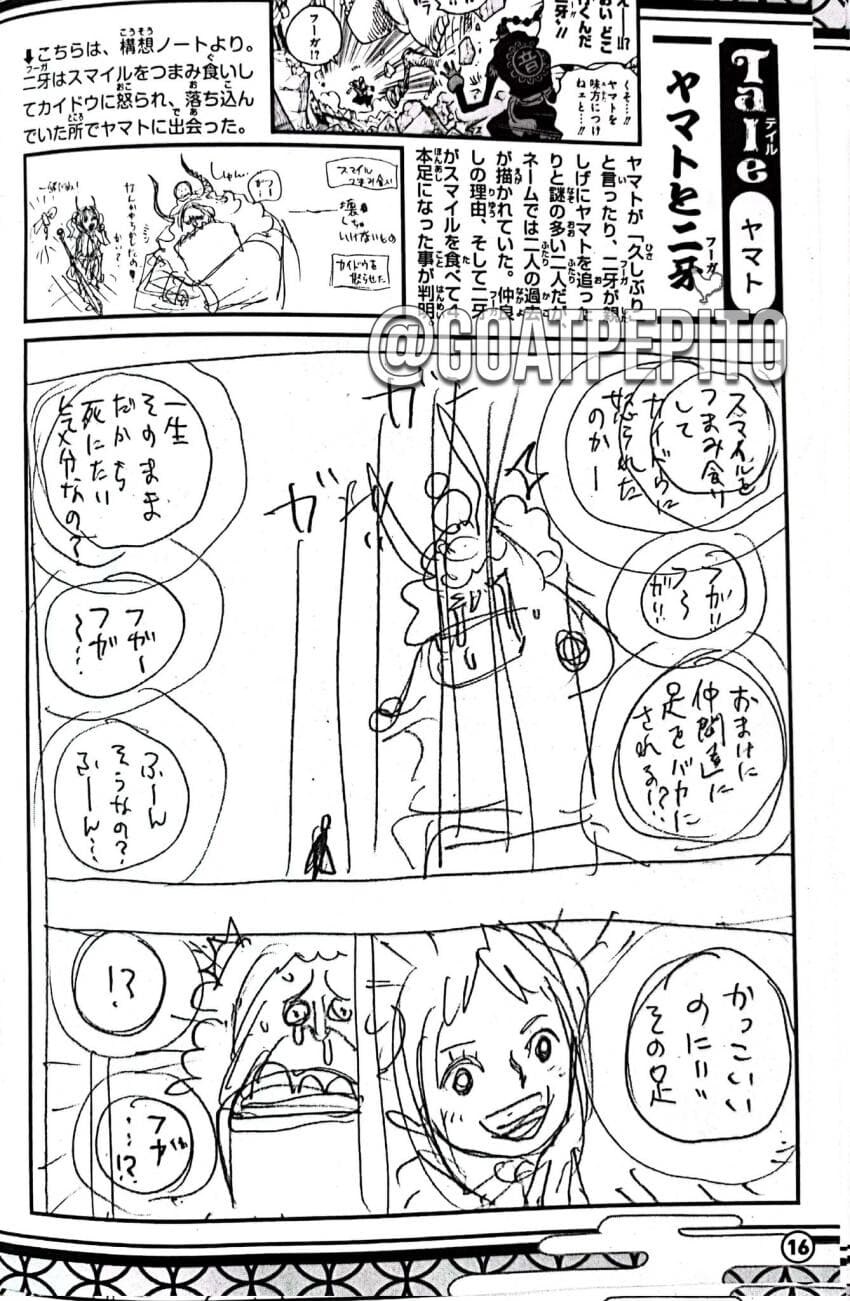 Tale
テイル
ヤマト
ヤマトと二牙
フーガ
えーー!?
おい どこ
行くんだ
二牙!!
フーガ!?
くそ…!!
ヤマトを
味方につけ
ねェと…!!
音
ヤマトが「久しぶり」
と言ったり、二牙が親
しげにヤマトを追った
りと謎の多い二人だが、
ネームでは二人の過去
が描かれていた。仲良
しの理由、そして二牙
がスマイルを食べて4
本足になった事が判明。
⬇こちらは、構想ノートより。
二牙はスマイルをつまみ食いし
てカイドウに怒られ、落ち込ん
でいた所でヤマトに出会った。
スマイル
つまみ食い
壊し
ちゃ
いけないもの
カイドウを
怒らせた
しゅん
@GOATPEPITO
スマイルを
つまみ食い
して
カイドウに
怒られた
のかー
フガ!!
フ〜
ガ!!
おまけに
仲間達に
足をバカに
される!?
ガ
ガ
一生
そのまま
だから
死にたい
気分なの?
フガー
フガ
〜…
ふーん
そうなの?
ふーん…
かっこいい
のに!!
その足
!?
フガ
…!?
16